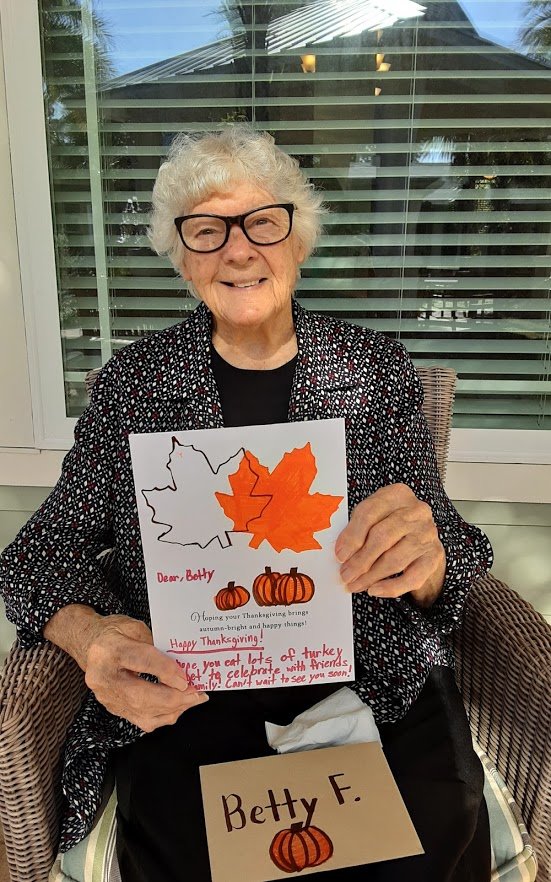 Dear, Betty
Hoping your Thanksgiving brings
autumn-bright and happy things!
Happy Thanksgiving!
hope you eat lots of turkey
get to celebrate with friends
family! Can't wait to see you soon!
Betty F.